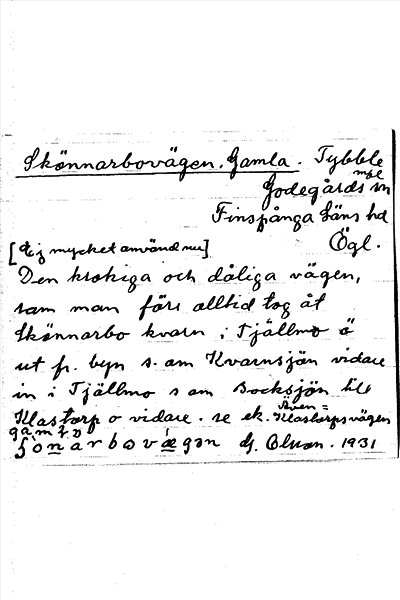 Skönnarbovägen, Gamla. Tybble
Godegårds sn
Finspånga läns hd
Ögl.
[Ej mycket använd nu]
Den krokiga och dåliga vägen,
som man förr alltid tog åt
Skönnarbo kvarn i Tjällmo ä
ut fr. byn s. om Kvarnsjön vidare
in i Tjällmo s om Bocksjön till
Klastorp o vidare. se ek. Klastorpsvägen
Även =
G. Olson. 1931